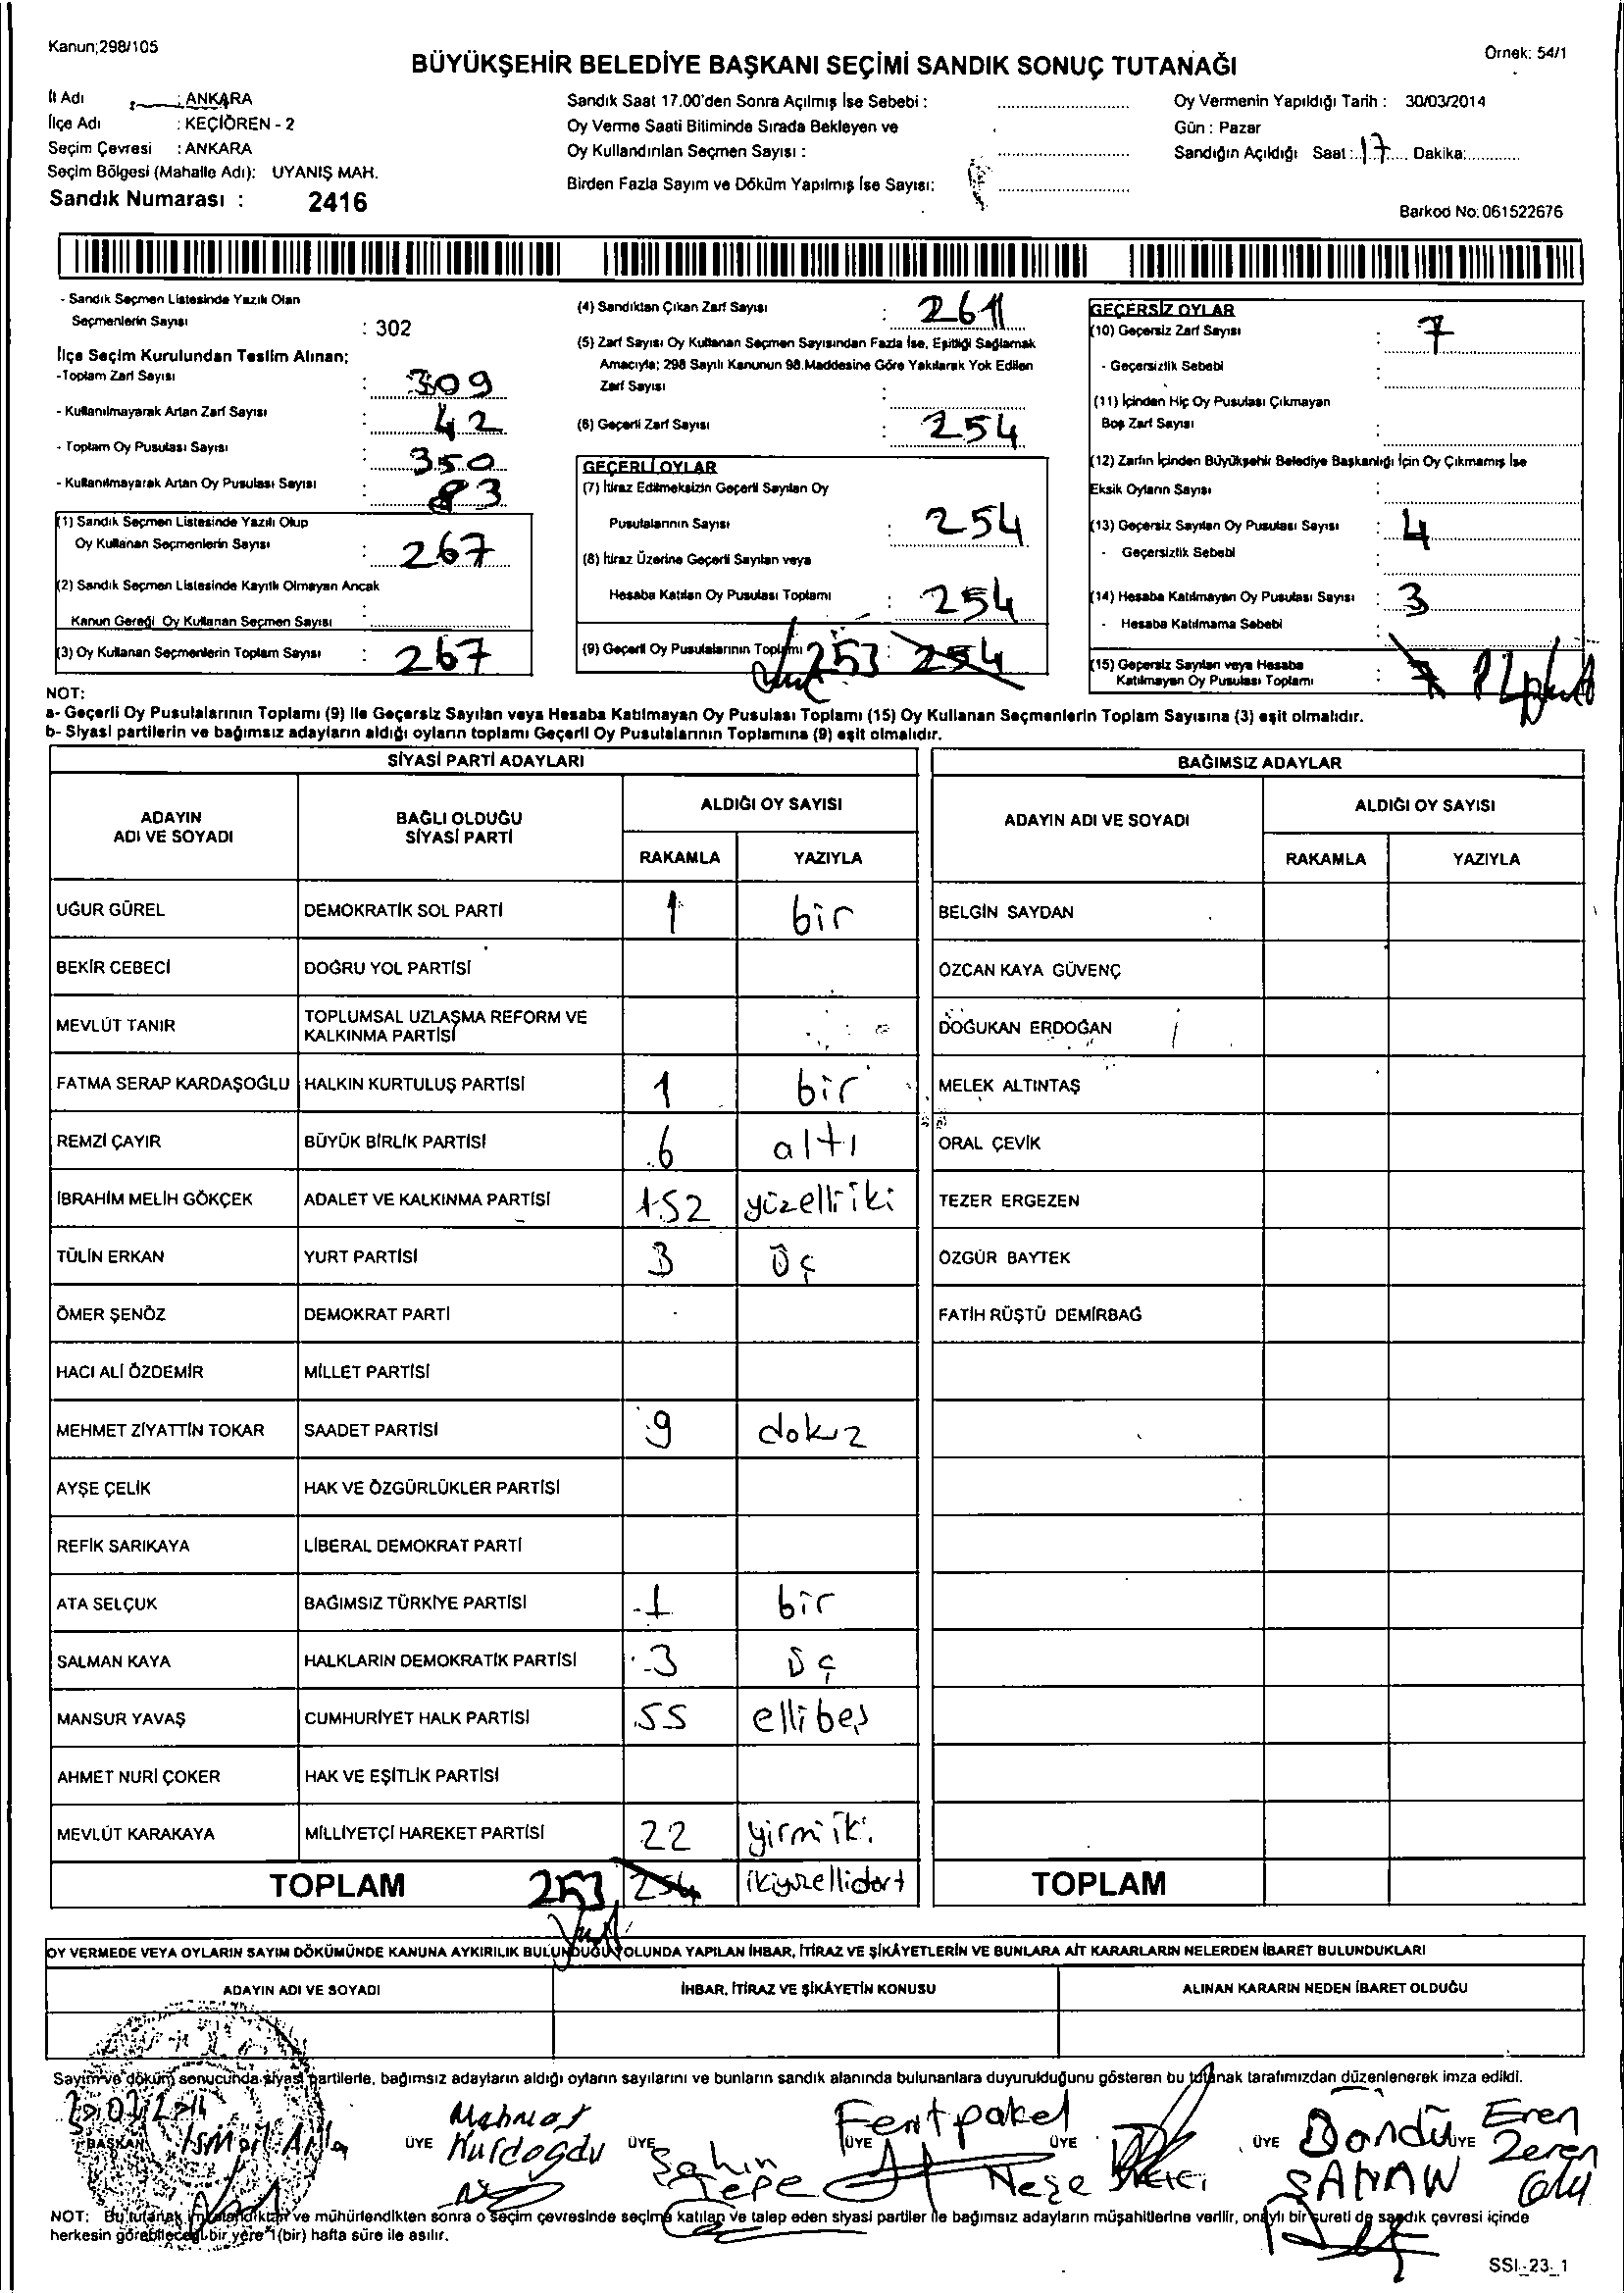 Kanun;298/105
Örnek: 54/1
BÜYÜKŞEHİR BELEDİYE BAŞKANI SEÇİMİ SANDIK SONUÇ TUTANAĞI
İl Adı : ANKARA
İlçe Adı : KEÇİÖREN - 2
Seçim Çevresi : ANKARA
Seçim Bölgesi (Mahalle Adı): UYANIŞ MAH.
Sandık Numarası : 2416
Sandık Saat 17.00'den Sonra Açılmış İse Sebebi :
Oy Verme Saati Bitiminde Sırada Bekleyen ve
Oy Kullandırılan Seçmen Sayısı :
Birden Fazla Sayım ve Döküm Yapılmış İse Sayısı:
Oy Vermenin Yapıldığı Tarih : 30/03/2014
Gün : Pazar
Sandığın Açıldığı Saat : 17 Dakika:
Barkod No: 061522676
- Sandık Seçmen Listesinde Yazılı Olan
Seçmenlerin Sayısı : 302
İlçe Seçim Kurulundan Teslim Alınan;
-Toplam Zarf Sayısı : 309
- Kullanılmayarak Artan Zarf Sayısı : 42
- Toplam Oy Pusulası Sayısı : 350
- Kullanılmayarak Artan Oy Pusulası Sayısı : 83
(1) Sandık Seçmen Listesinde Yazılı Olup
Oy Kullanan Seçmenlerin Sayısı : 267
(2) Sandık Seçmen Listesinde Kayıtlı Olmayan Ancak
Kanun Gereği Oy Kullanan Seçmen Sayısı :
(3) Oy Kullanan Seçmenlerin Toplam Sayısı : 267
(4) Sandıktan Çıkan Zarf Sayısı : 261
(5) Zarf Sayısı Oy Kullanan Seçmen Sayısından Fazla İse, Eşitliği Sağlamak
Amacıyla; 298 Sayılı Kanunun 98.Maddesine Göre Yakılarak Yok Edilen
Zarf Sayısı :
(6) Geçerli Zarf Sayısı : 254
GEÇERLİ OYLAR
(7) İtiraz Edilmeksizin Geçerli Sayılan Oy
Pusulalarının Sayısı : 254
(8) İtiraz Üzerine Geçerli Sayılan veya
Hesaba Katılan Oy Pusulası Toplamı : 254
(9) Geçerli Oy Pusulalarının Toplamı 253 : 254
GEÇERSİZ OYLAR
(10) Geçersiz Zarf Sayısı : 7
- Geçersizlik Sebebi :
(11) İçinden Hiç Oy Pusulası Çıkmayan
Boş Zarf Sayısı :
(12) Zarfın İçinden Büyükşehir Belediye Başkanlığı İçin Oy Çıkmamış İse
Eksik Oyların Sayısı :
(13) Geçersiz Sayılan Oy Pusulası Sayısı : 4
- Geçersizlik Sebebi :
(14) Hesaba Katılmayan Oy Pusulası Sayısı : 3
- Hesaba Katılmama Sebebi :
(15) Geçersiz Sayılan veya Hesaba
Katılmayan Oy Pusulası Toplamı : 7
NOT:
a- Geçerli Oy Pusulalarının Toplamı (9) ile Geçersiz Sayılan veya Hesaba Katılmayan Oy Pusulası Toplamı (15) Oy Kullanan Seçmenlerin Toplam Sayısına (3) eşit olmalıdır.
b- Siyasi partilerin ve bağımsız adayların aldığı oyların toplamı Geçerli Oy Pusulalarının Toplamına (9) eşit olmalıdır.
SİYASİ PARTİ ADAYLARI
ADAYIN ADI VE SOYADI
BAĞLI OLDUĞU SİYASİ PARTİ
ALDIĞI OY SAYISI
RAKAMLA YAZIYLA
UĞUR GÜREL DEMOKRATİK SOL PARTİ 1 bir
BEKİR CEBECİ DOĞRU YOL PARTİSİ
MEVLÜT TANIR TOPLUMSAL UZLAŞMA REFORM VE
KALKINMA PARTİSİ
FATMA SERAP KARDAŞOĞLU HALKIN KURTULUŞ PARTİSİ 1 bir
REMZİ ÇAYIR BÜYÜK BİRLİK PARTİSİ 6 altı
İBRAHİM MELİH GÖKÇEK ADALET VE KALKINMA PARTİSİ 152 yüzelliiki
TÜLİN ERKAN YURT PARTİSİ 3 üç
ÖMER ŞENÖZ DEMOKRAT PARTİ
HACI ALİ ÖZDEMİR MİLLET PARTİSİ
MEHMET ZİYATTİN TOKAR SAADET PARTİSİ 9 dokuz
AYŞE ÇELİK HAK VE ÖZGÜRLÜKLER PARTİSİ
REFİK SARIKAYA LİBERAL DEMOKRAT PARTİ
ATA SELÇUK BAĞIMSIZ TÜRKİYE PARTİSİ 1 bir
SALMAN KAYA HALKLARIN DEMOKRATİK PARTİSİ 3 üç
MANSUR YAVAŞ CUMHURİYET HALK PARTİSİ 55 ellibeş
AHMET NURİ ÇOKER HAK VE EŞİTLİK PARTİSİ
MEVLÜT KARAKAYA MİLLİYETÇİ HAREKET PARTİSİ 22 yirmiiki
TOPLAM 253 254 ikiyüzellidört
BAĞIMSIZ ADAYLAR
ADAYIN ADI VE SOYADI
ALDIĞI OY SAYISI
RAKAMLA YAZIYLA
BELGİN SAYDAN
ÖZCAN KAYA GÜVENÇ
DOĞUKAN ERDOĞAN
MELEK ALTINTAŞ
ORAL ÇEVİK
TEZER ERGEZEN
ÖZGÜR BAYTEK
FATİH RÜŞTÜ DEMİRBAĞ
TOPLAM
OY VERMEDE VEYA OYLARIN SAYIM DÖKÜMÜNDE KANUNA AYKIRILIK BULUNDUĞU YOLUNDA YAPILAN İHBAR, İTİRAZ VE ŞİKÂYETLERİN VE BUNLARA AİT KARARLARIN NELERDEN İBARET BULUNDUKLARI
ADAYIN ADI VE SOYADI İHBAR, İTİRAZ VE ŞİKÂYETİN KONUSU ALINAN KARARIN NEDEN İBARET OLDUĞU
Sayım ve döküm sonucunda siyasi partilerle, bağımsız adayların aldığı oyların sayılarını ve bunların sandık alanında bulunanlara duyurulduğunu gösteren bu tutanak tarafımızdan düzenlenerek imza edildi.
BAŞKAN İsmail
ÜYE Mehmet Kurdoğdu
ÜYE Şahin Tepe
ÜYE Ferit
ÜYE Neşe
ÜYE Döndü
ÜYE Eren Zeren
NOT: Bu tutanak imzalandıktan ve mühürlendikten sonra o seçim çevresinde seçime katılan ve talep eden siyasi partiler ile bağımsız adayların müşahitlerine verilir, onaylı bir sureti de sandık çevresi içinde
herkesin görebileceği bir yere 1 (bir) hafta süre ile asılır.
SSI_23_1